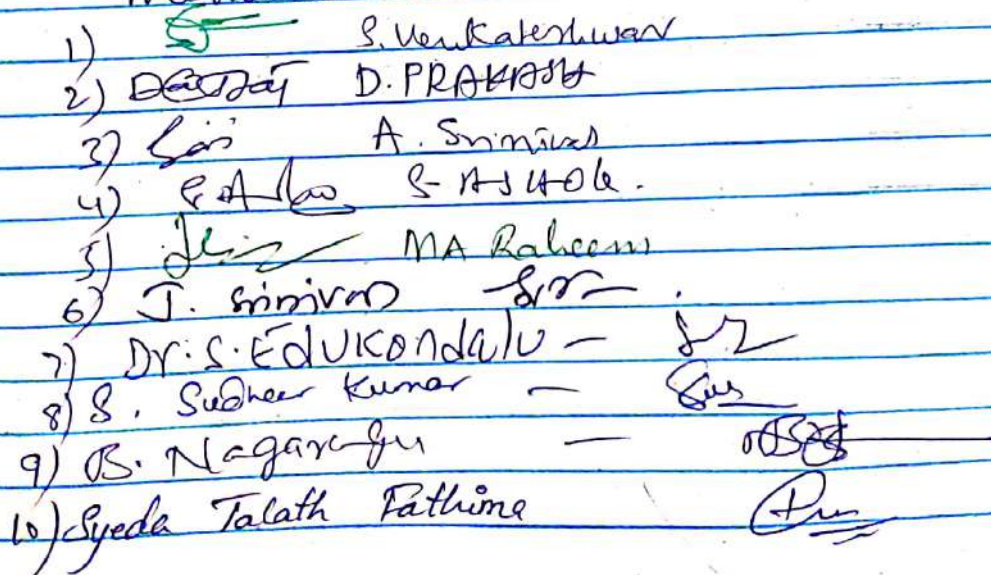 1) S. Venkateshwar
2) D. PRAKASH
3) A. Srinivas
4) S. ASHOK.
5) MA Raheem
6) J. Srinivas
7) Dr. S. Edukondalu -
8) S. Sudheer Kumar -
9) B. Nagaraju -
10) Syeda Talath Fathima